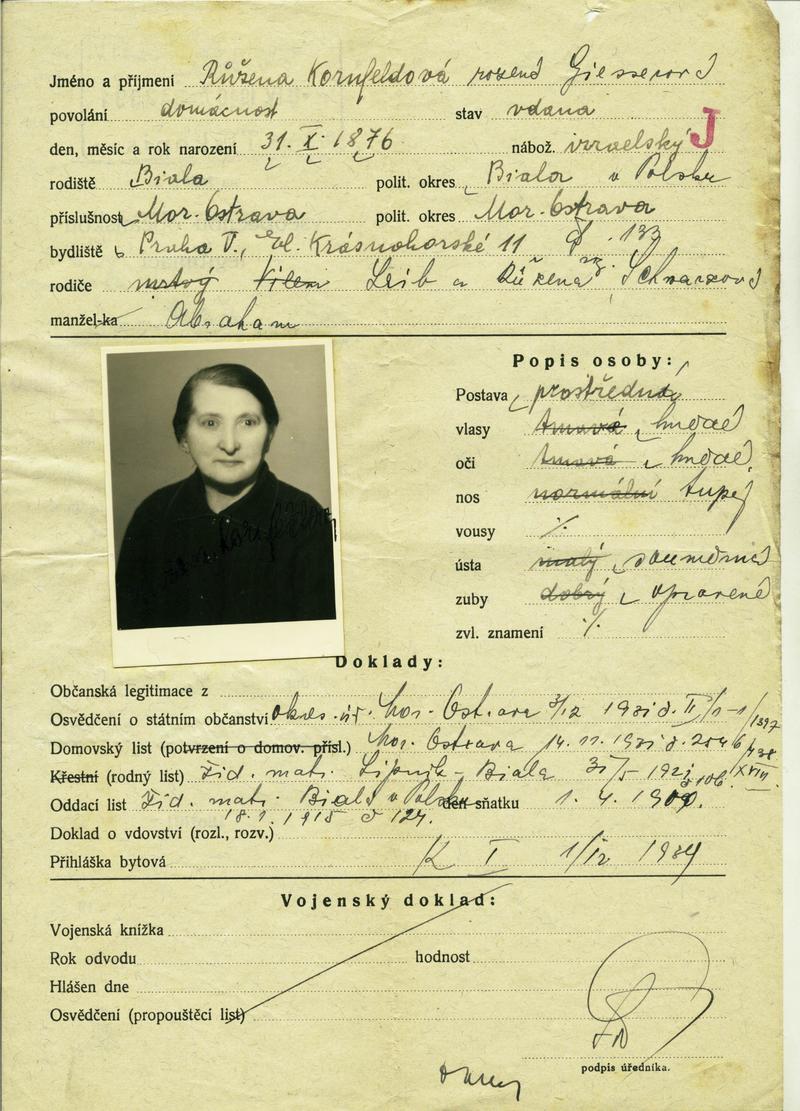 Jméno a příjmení Růžena Kornfeldová rozená Giesserová
povolání domácnost stav vdana
den, měsíc a rok narození 31. X. 1876 nábož. izraelský J
rodiště Biala polit. okres Biala v Polsku
příslušnost Mor. Ostrava polit. okres Mor. Ostrava
bydliště Praha V., El. Krásnohorské 11
rodiče mrtvý Vilem Leib a Růžena
manžel-ka Abraham
Popis osoby:
Postava prostředná
vlasy tmavé hnědé
oči tmavé hnědé
nos normální tupý
vousy ./.
ústa malý souměrná
zuby dobrý opravené
zvl. znamení ./.
Doklady:
Občanská legitimace z
Osvědčení o státním občanství okres. úř. Mor. Ostrava
Domovský list (potvrzení o domov. přísl.) Mor. Ostrava 14. 11.
Křestní (rodný list) Žid. mat. Lipnik - Biala
Oddací list Žid. mat. Biala v Polsku den sňatku 1. 4. 1900.
18. 1. 1915 127.
Doklad o vdovství (rozl., rozv.)
Přihláška bytová K I
Vojenský doklad:
Vojenská knížka
Rok odvodu hodnost
Hlášen dne
Osvědčení (propouštěcí list)
podpis úředníka.